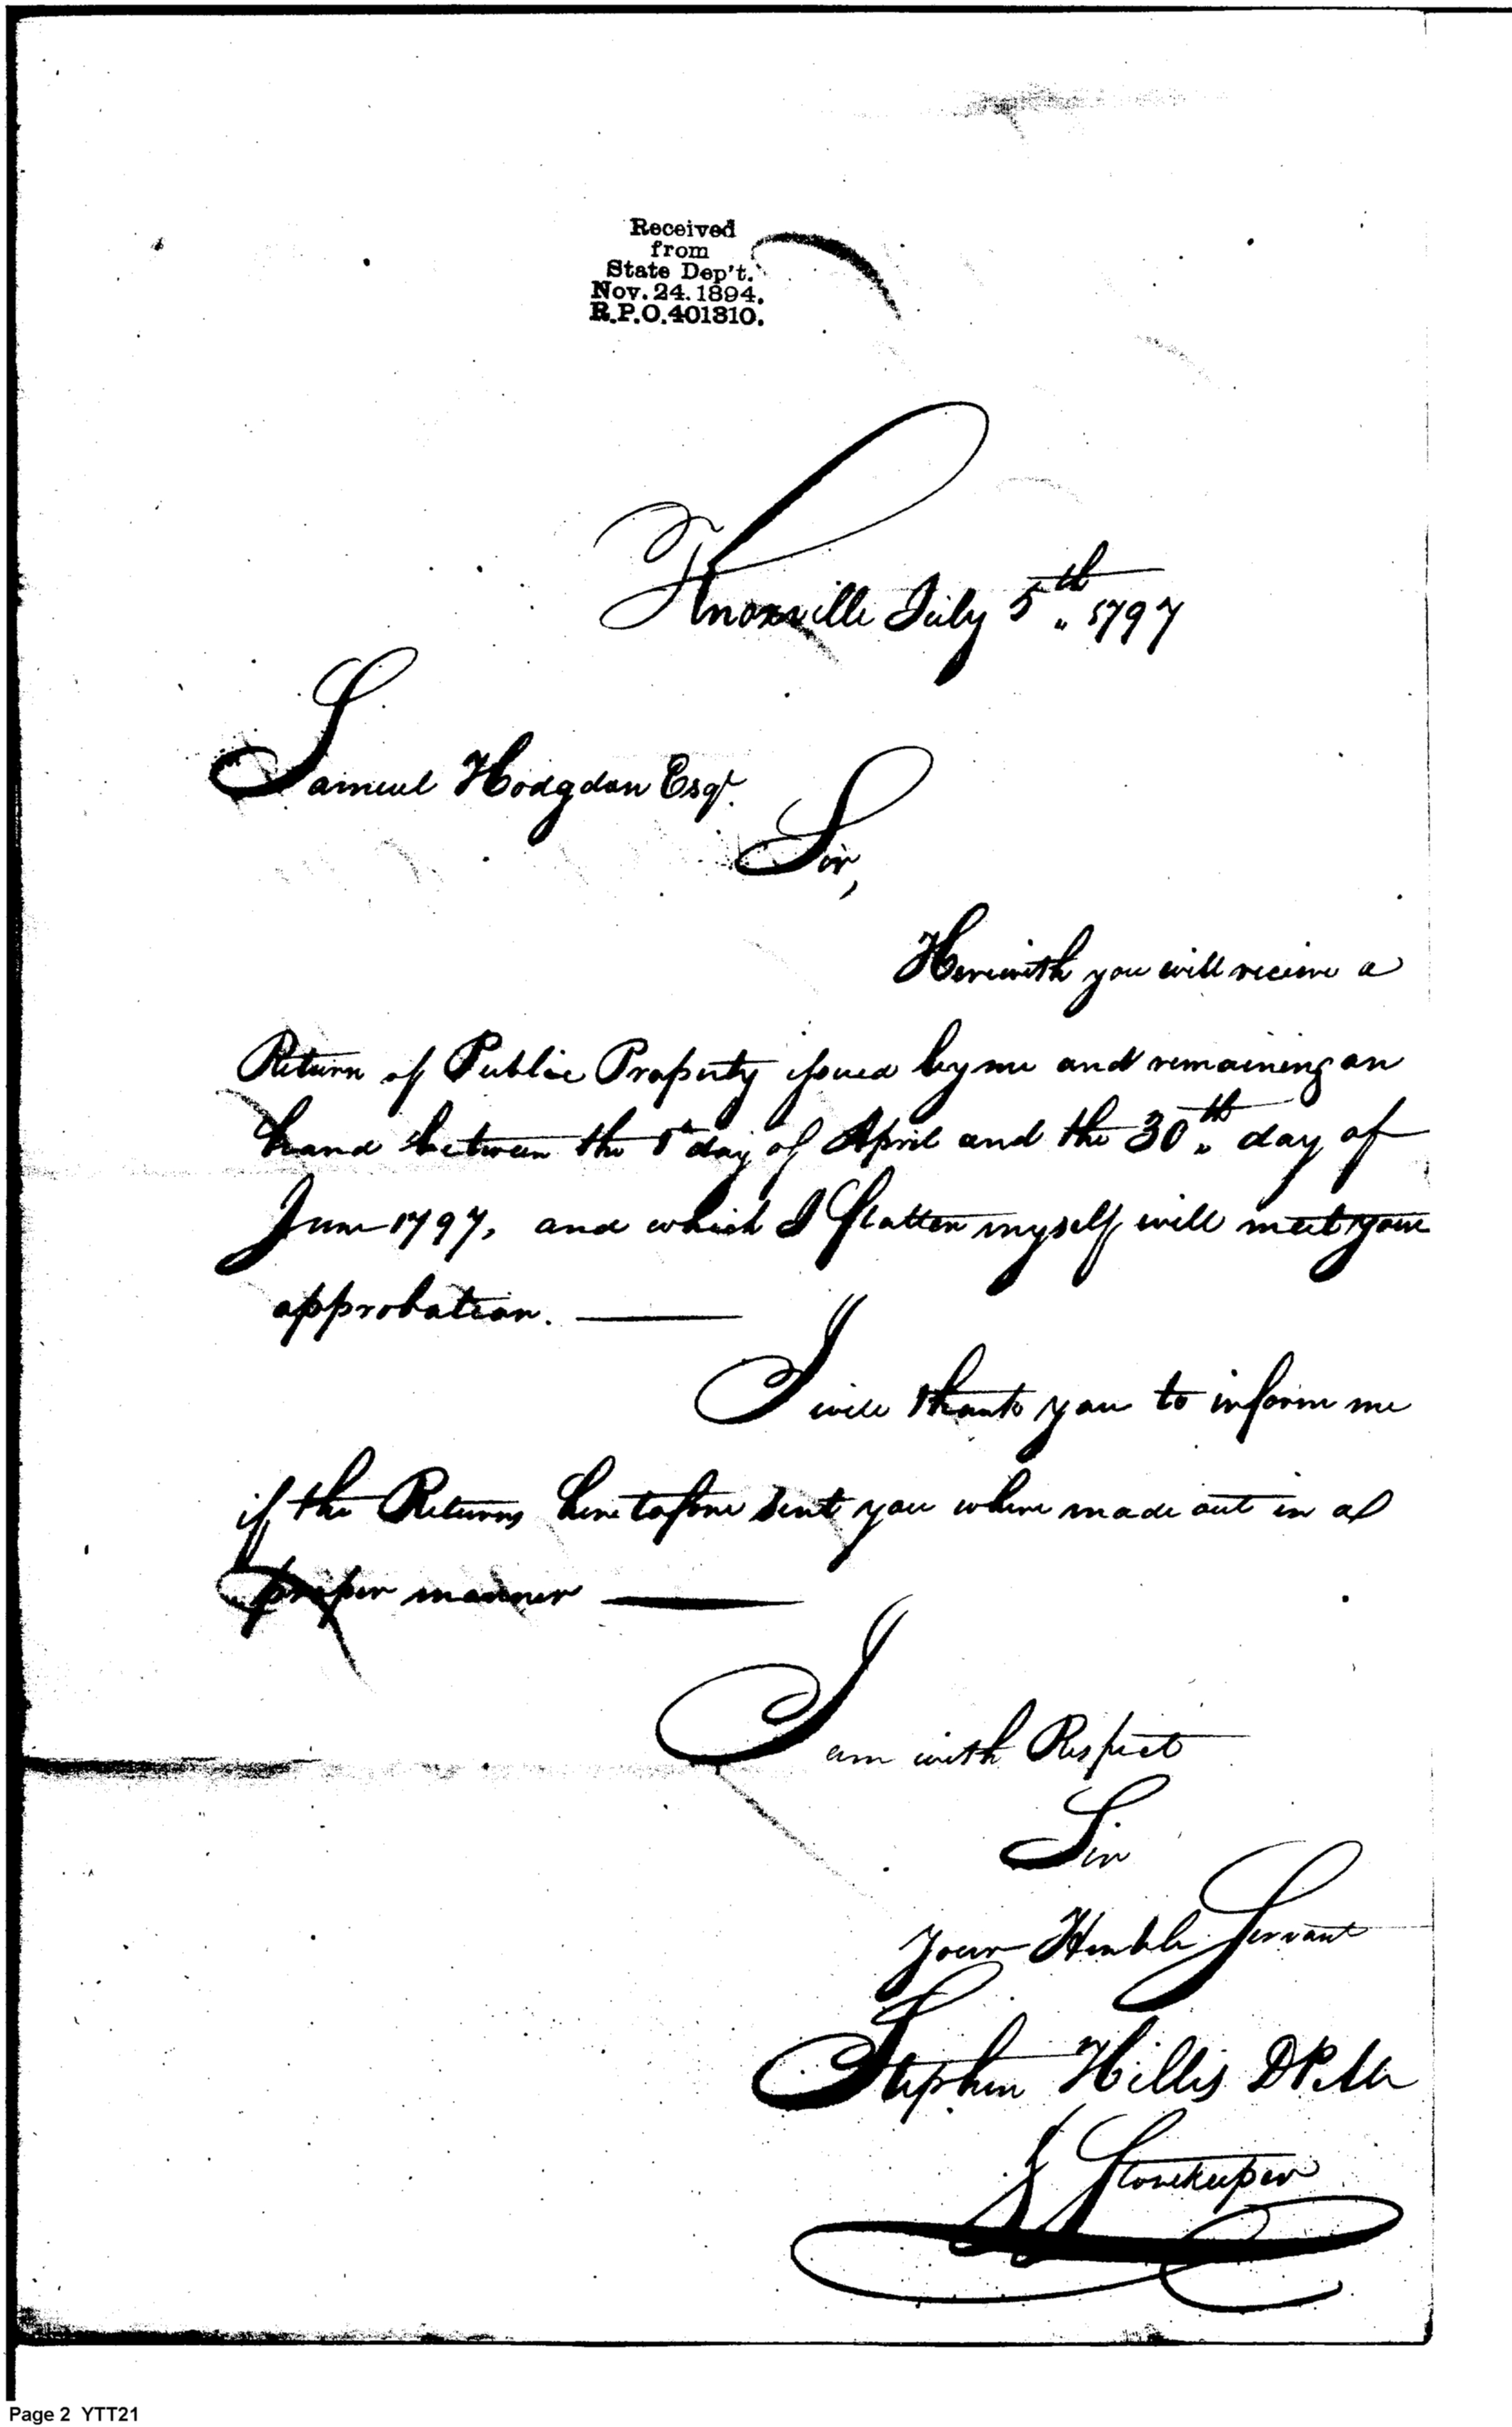 Received
from
State Dep't.
Nov. 24. 1894.
R.P.O. 401310.
Knoxville July 5th 1797
Samuel Hodgdon Esqr.
Sir,
Herewith you will receive a
Return of Public Property issued by me and remaining on
hand between the 1st day of April and the 30th day of
June 1797, and which I flatter myself will meet your
approbation.
I will thank you to inform me
if the Returns heretofore sent you where made out in a
proper manner
I am with Respect
Sir
Your Humble Servant
Stephen Hillis
Storekeeper
Page 2 YTT21